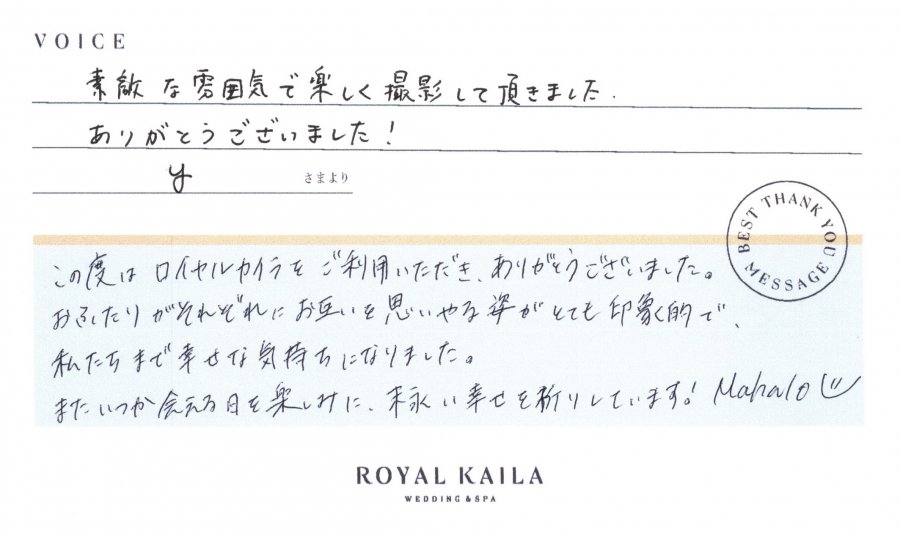 VOICE
素敵な雰囲気で楽しく撮影して頂きました.
ありがとうございました!
y
さまより
BEST THANK YOU MESSAGE
この度はロイヤルカイラをご利用いただき、ありがとうございました。
おふたりがそれぞれにお互いを思いやる姿がとても印象的で、
私たちまで幸せな気持ちになりました。
またいつか会える日を楽しみに、末永い幸せを祈りしています! Mahalo
ROYAL KAILA
WEDDING & SPA